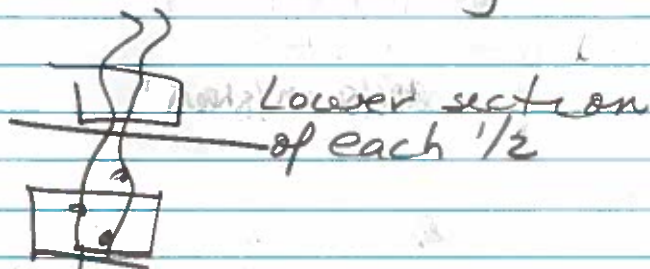 Lower section
of each 1/2